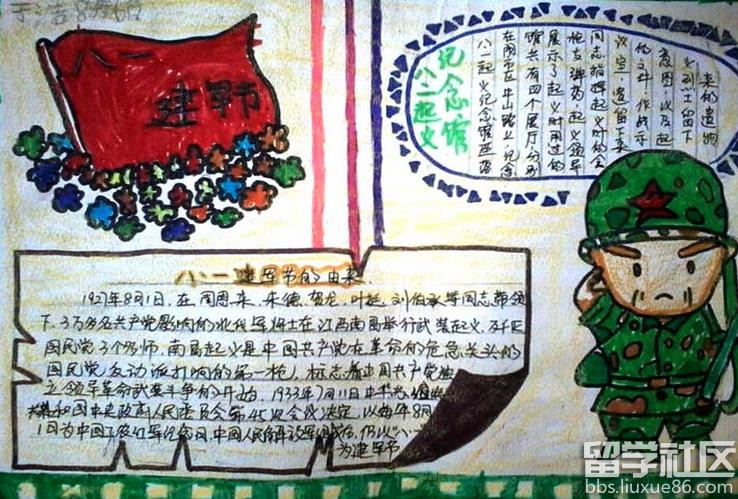 建军节
纪念馆
八一起义
八一起义纪念馆
在
馆共有四个展厅分别
展示了起义时用过的
枪支弹药起义领导
同志指挥起义时的会
议室遗留下来
的文件作战示
意图以及起
义烈士留下
来的遗物
八一建军节的由来
1927年8月1日，在周恩来、朱德、贺龙、叶挺、刘伯承等同志带领
下，3万多名共产党影响的北伐军将士在江西南昌举行武装起义，
国民党3个多师，南昌起义是中国共产党在革命的危急关头
国民党反动派打响的第一枪，标志着中国共产党独
立领导革命武装斗争的开始。1933年7月11日中华
和国中央政府人民委员会第45次会议决定，以每年8月
1日为中国工农红军纪念日，中国人民解放军 仍以"八一"
为建军节
留学社区
bbs.liuxue86.com